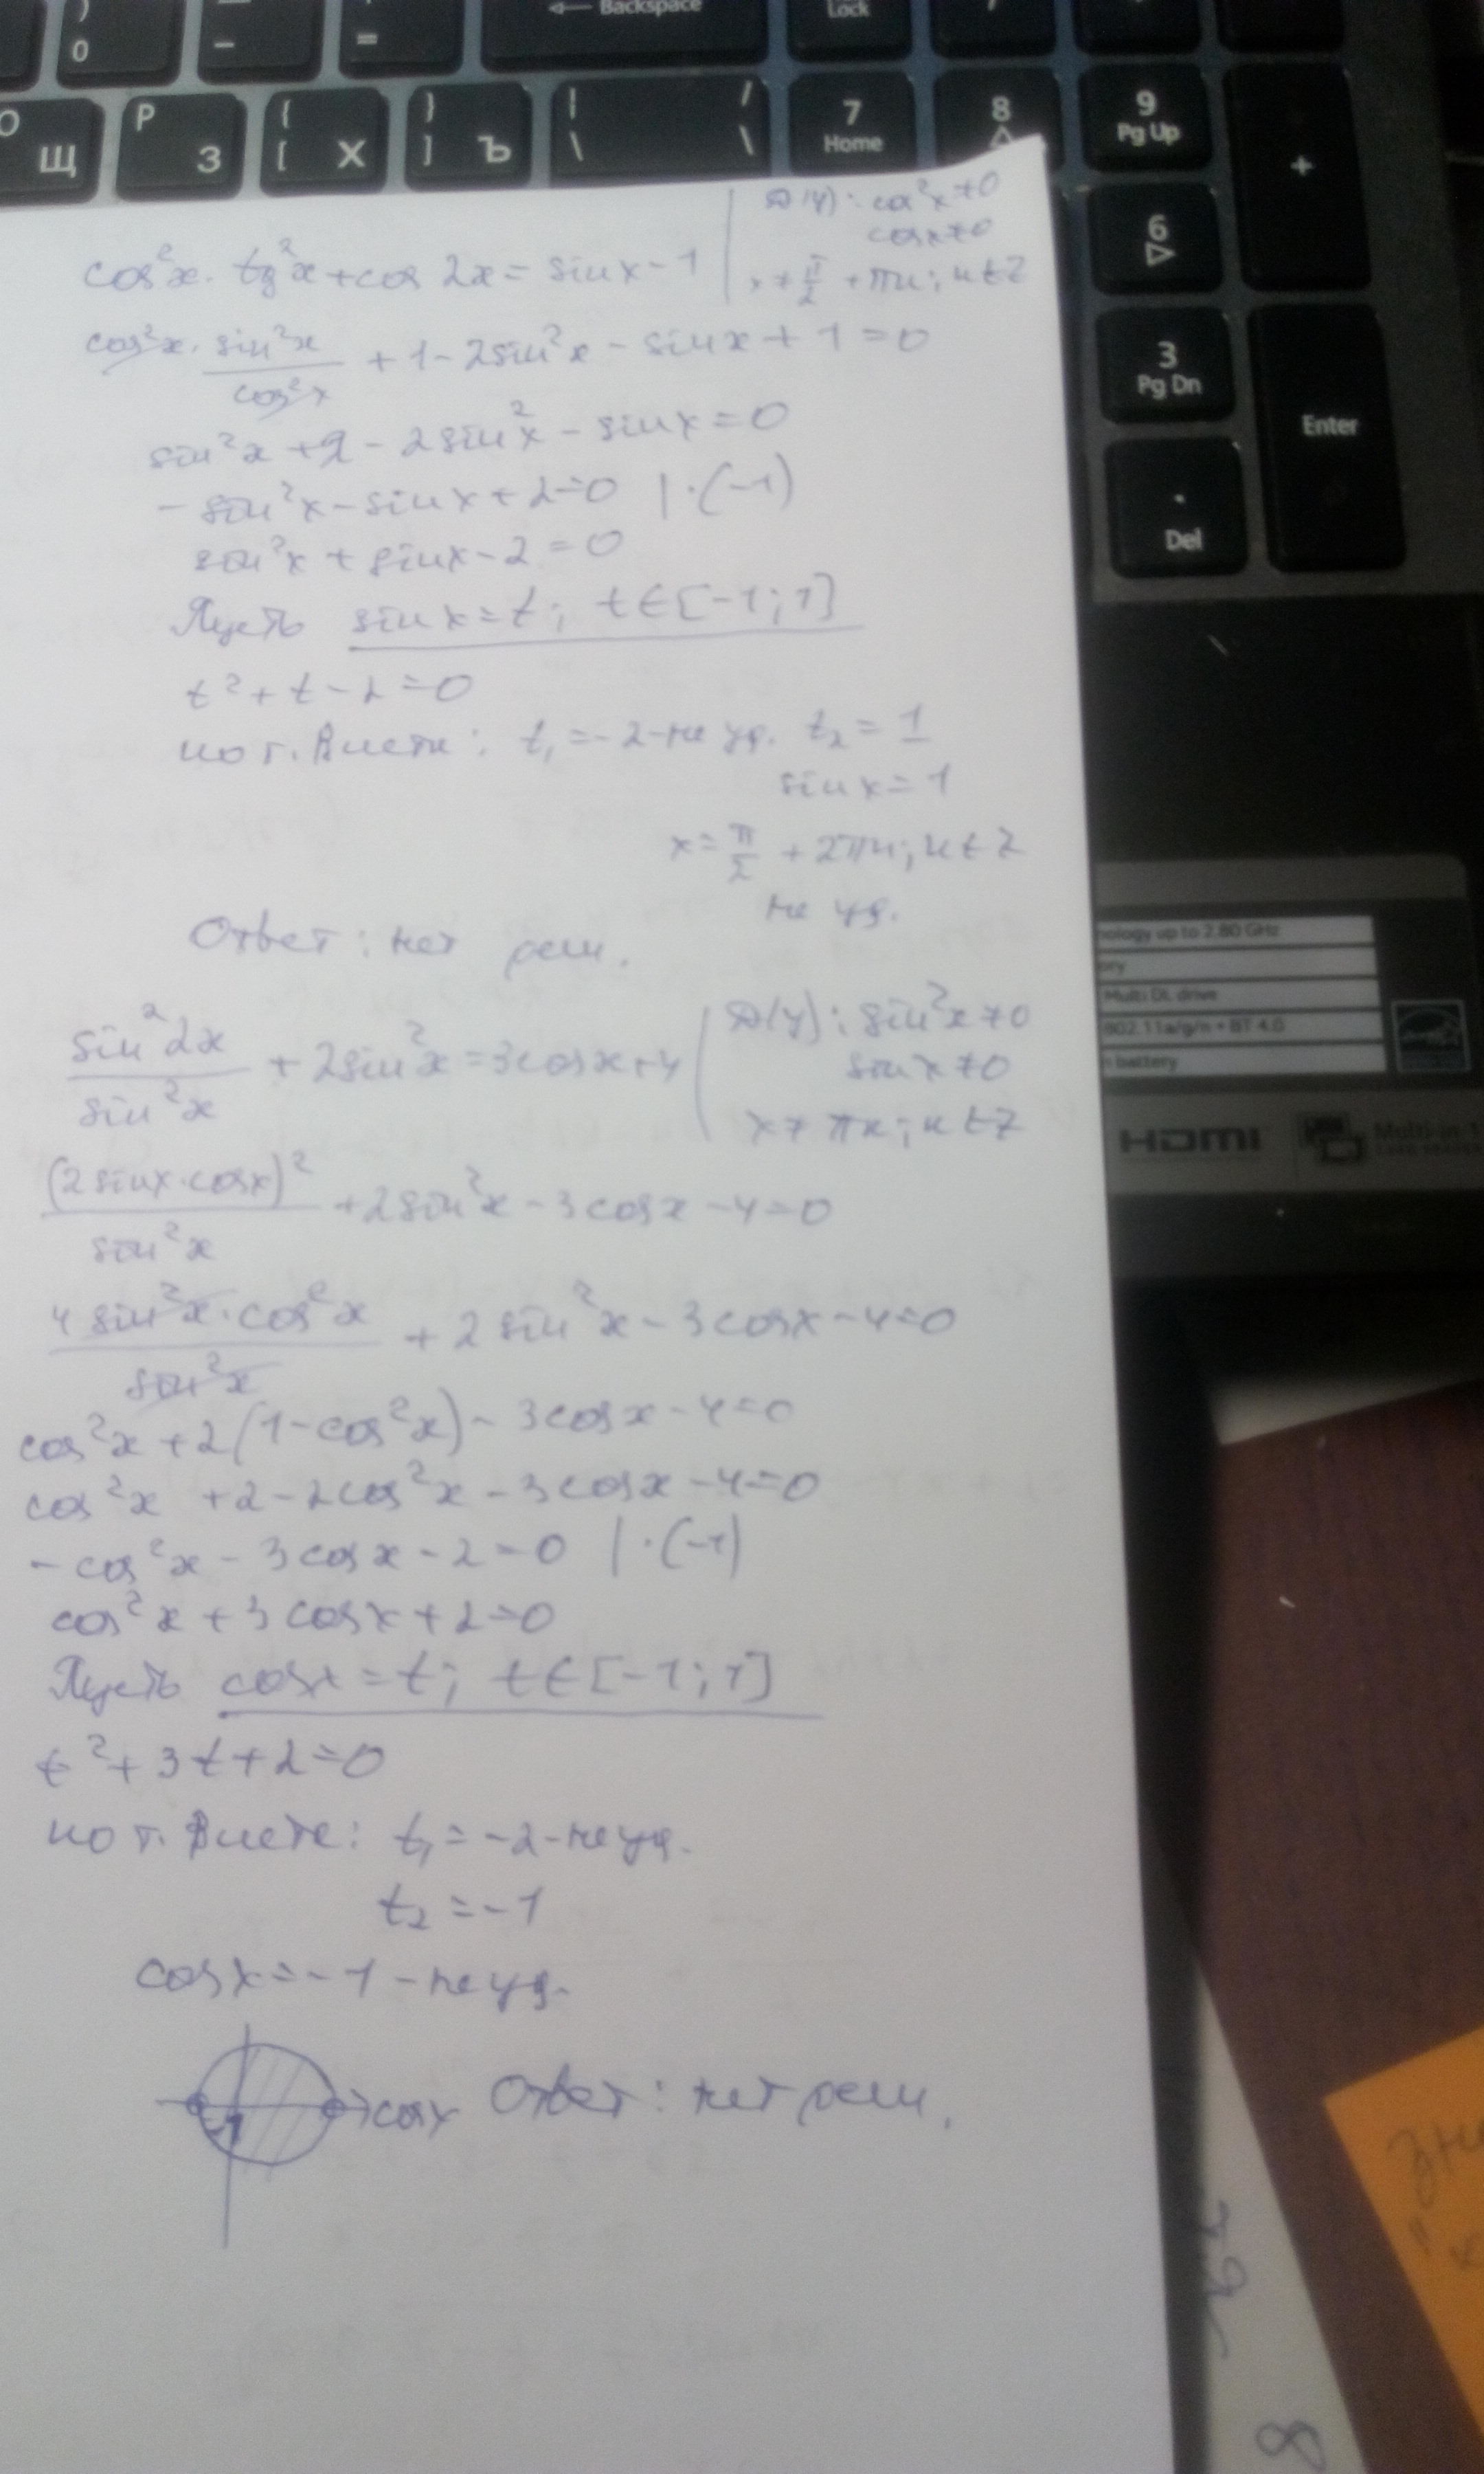 ) 0
_ -
+ =
← Backspace
Lock
О Щ
P З
{ [ Х
} ] Ъ
| \ / \
7 Home
8
9 Pg Up
+
6
3 Pg Dn
Enter
. Del
cos²x · tg²x + cos 2x = sin x - 1
D(y): cos²x ≠ 0
cos x ≠ 0
x ≠ π/2 + πn; n ∈ Z
cos²x · sin²x/cos²x + 1 - 2sin²x - sin x + 1 = 0
sin²x + 2 - 2sin²x - sin x = 0
- sin²x - sin x + 2 = 0 | · (-1)
sin²x + sin x - 2 = 0
Пусть sin x = t; t ∈ [-1; 1]
t² + t - 2 = 0
по т. Виета: t₁ = -2 - не уд. t₂ = 1
sin x = 1
x = π/2 + 2πn; n ∈ Z
не уд.
Ответ: нет реш.
sin²2x/sin²x + 2sin²x = 3cos x + 4
D(y): sin²x ≠ 0
sin x ≠ 0
x ≠ πn; n ∈ Z
(2sin x · cos x)²/sin²x + 2sin²x - 3cos x - 4 = 0
4sin²x · cos²x/sin²x + 2sin²x - 3cos x - 4 = 0
cos²x + 2(1 - cos²x) - 3cos x - 4 = 0
cos²x + 2 - 2cos²x - 3cos x - 4 = 0
- cos²x - 3cos x - 2 = 0 | · (-1)
cos²x + 3cos x + 2 = 0
Пусть cos x = t; t ∈ [-1; 1]
t² + 3t + 2 = 0
по т. Виете: t₁ = -2 - не уд.
t₂ = -1
cos x = -1 - не уд.
-1 cos x Ответ: нет реш.
nology up to 2.80 GHz
ory
Multi DL drive
802.11a/g/n + BT 4.0
n battery
HDMI
Multi-in-1
8